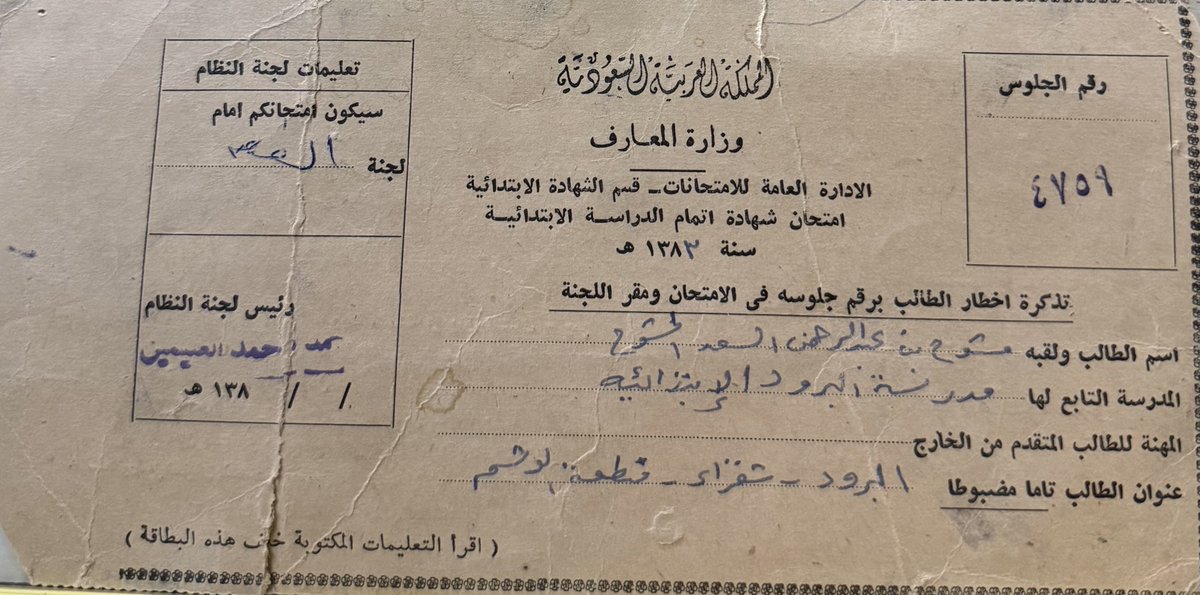 المملكة العربية السعودية
وزارة المعارف
الادارة العامة للامتحانات - قسم الشهادة الابتدائية
امتحان شهادة اتمام الدراسة الابتدائية
سنة ١٣٨٢ هـ
رقم الجلوس
٤٧٥٩
تذكرة اخطار الطالب برقم جلوسه في الامتحان ومقر اللجنة
اسم الطالب ولقبه مشوح بن عبدالرحمن السعد المشوح
المدرسة التابع لها مدرسة البرود الإبتدائيه
المهنة للطالب المتقدم من الخارج
عنوان الطالب تاما مضبوطا البرود - شقراء - منطقة الوشم
( اقرأ التعليمات المكتوبة خلف هذه البطاقة )
تعليمات لجنة النظام
سيكون امتحانكم امام
لجنة
رئيس لجنة النظام
حمد العيميين
/ / ١٣٨ هـ